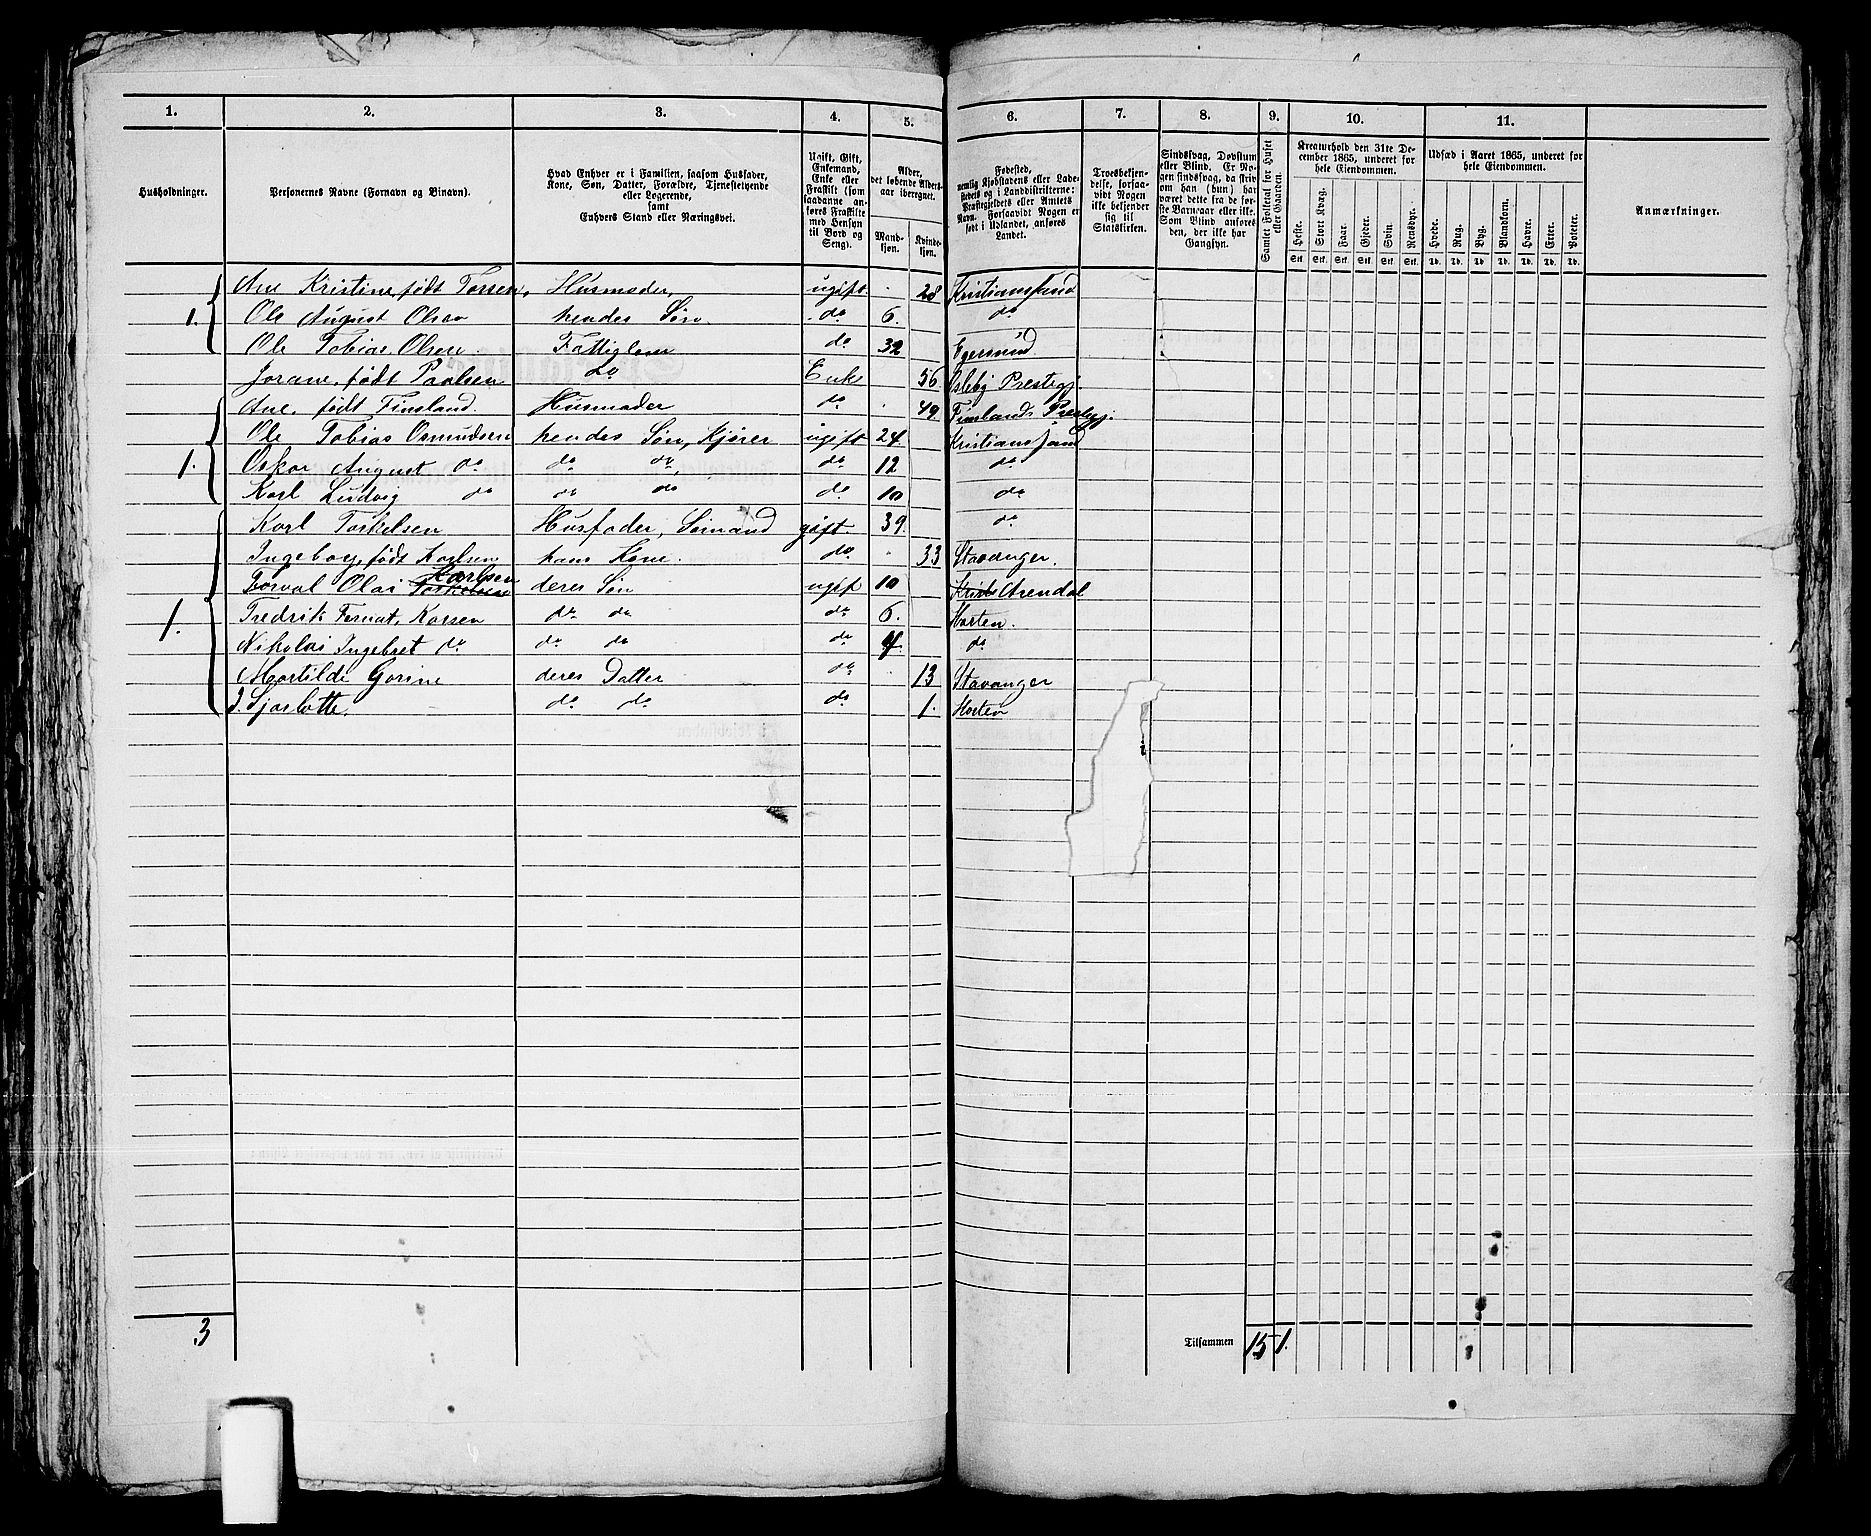 1. 2. 3. 4. 5. 6. 7. 8. 9. 10. 11.
Husholdninger.
Personernes Navne (Fornavn og Binavn).
Hvad Enhver er i Familien, saasom Husfader,
Kone, Søn, Datter, Forældre, Tjenestetyende
eller Logerende,
samt
Enhvers Stand eller Næringsvei.
Ugift, Gift,
Enkemand,
Enke eller
Fraskilt (som
saadanne an-
føres Fraskilte
med Hensyn
til Bord og
Seng).
Alder,
det løbende Alders-
aar iberegnet.
Mand-
kjøn.
Kvinde-
kjøn.
Fødested,
nemlig Kjøbstadens eller Lade-
stedets og i Landdistrikterne:
Præstegjeldets eller Amtets
Navn. Forsaavidt Nogen er
født i Udlandet, anføres
Landet.
Troesbekjen-
delse, forsaa-
vidt Nogen
ikke bekjender
sig til
Statskirken.
Sindssvag, Døvstum
eller Blind. Er No-
gen sindssvag, da skriv
om han (hun) har
været dette fra de før-
ste Barneaar eller ikke.
Som Blind anføres
den, der ikke har
Gangsyn.
Samlet Folketal for Huset
eller Gaarden.
Kreaturhold den 31te De-
cember 1865, underet for
hele Eiendommen.
Heste. Stort Kvæg. Faar. Gjeder. Svin. Rensdyr.
Stk. Stk. Stk. Stk. Stk. Stk.
Udsæd i Aaret 1865, underet for
hele Eiendommen.
Hvede. Rug. Byg. Blandkorn. Havre. Erter. Poteter.
Td. Td. Td. Td. Td. Td. Td.
Anmærkninger.
Ane Kristine, født Torsen, Husmoder, ugift 28 Kristianssand
1. Ole August Olsen hendes Søn do 6. do
Ole Tobias Olsen Fattiglem do 32 Egersund
Jorane, født Paulsen do Enke 56 Oslebj Prestegj.
Ane, født Finsland. Husmoder do 49 Finslands Prestegj.
Ole Tobias Osmundsen hendes Søn, Kjører ugift 24 Kristianssand
1. Oskar August do do do, do 12 do
Karl Ludvig do do do do 10 do
Karl Torkelsen Husfader, Sømand gift 39 do
Ingeborg, født Karlsen hans Kone. do 33 Stavanger.
Torval Olai Torkelsen Karlsen deres Søn ugift 10 Krists Arendal
1. Fredrik Fernat, Karsen do do do 6. Horten.
Nikolai Ingebret do do do do 4 do
Martilde Gorine deres Datter do 13 Stavanger
J. Sjarlotte. do do do 1. Horten
3
Tilsammen 15 1.